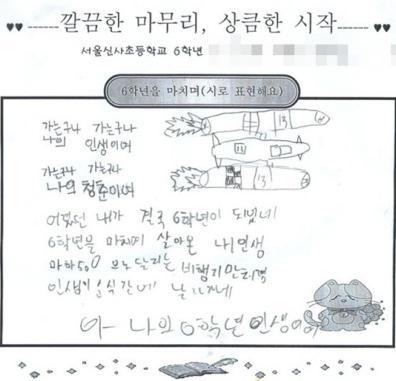 깔끔한 마무리, 상큼한 시작
서울신사초등학교 6학년
6학년을 마치며(시로 표현해요)
가는구나 가는구나
나의 인생이여
가는구나 가는구나
나의 청춘이여
어렸던 내가 결국 6학년이 되었네
6학년을 마치며 살아온 내 인생
마하 500 으로 달리는 비행기만
인생이 순식간에 날
아 나의 6학년 인생이여
13
13
13